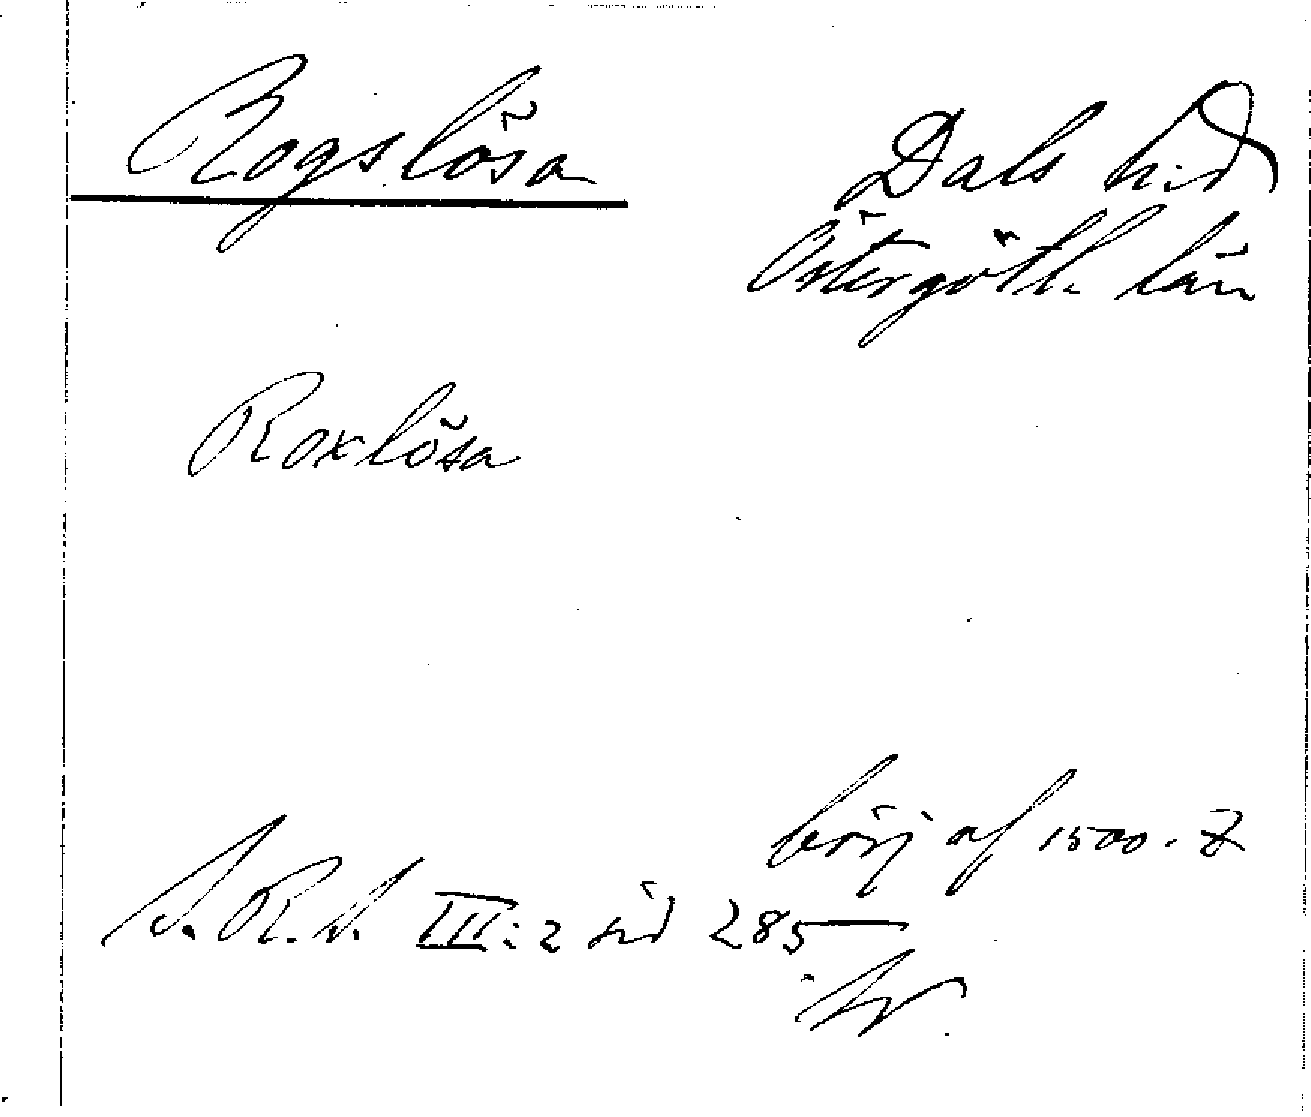 Rogslösa
Dals hd
Östergötl. län
Roxlösa
börj af 1500. t
S.R.S. III:2 sid 285